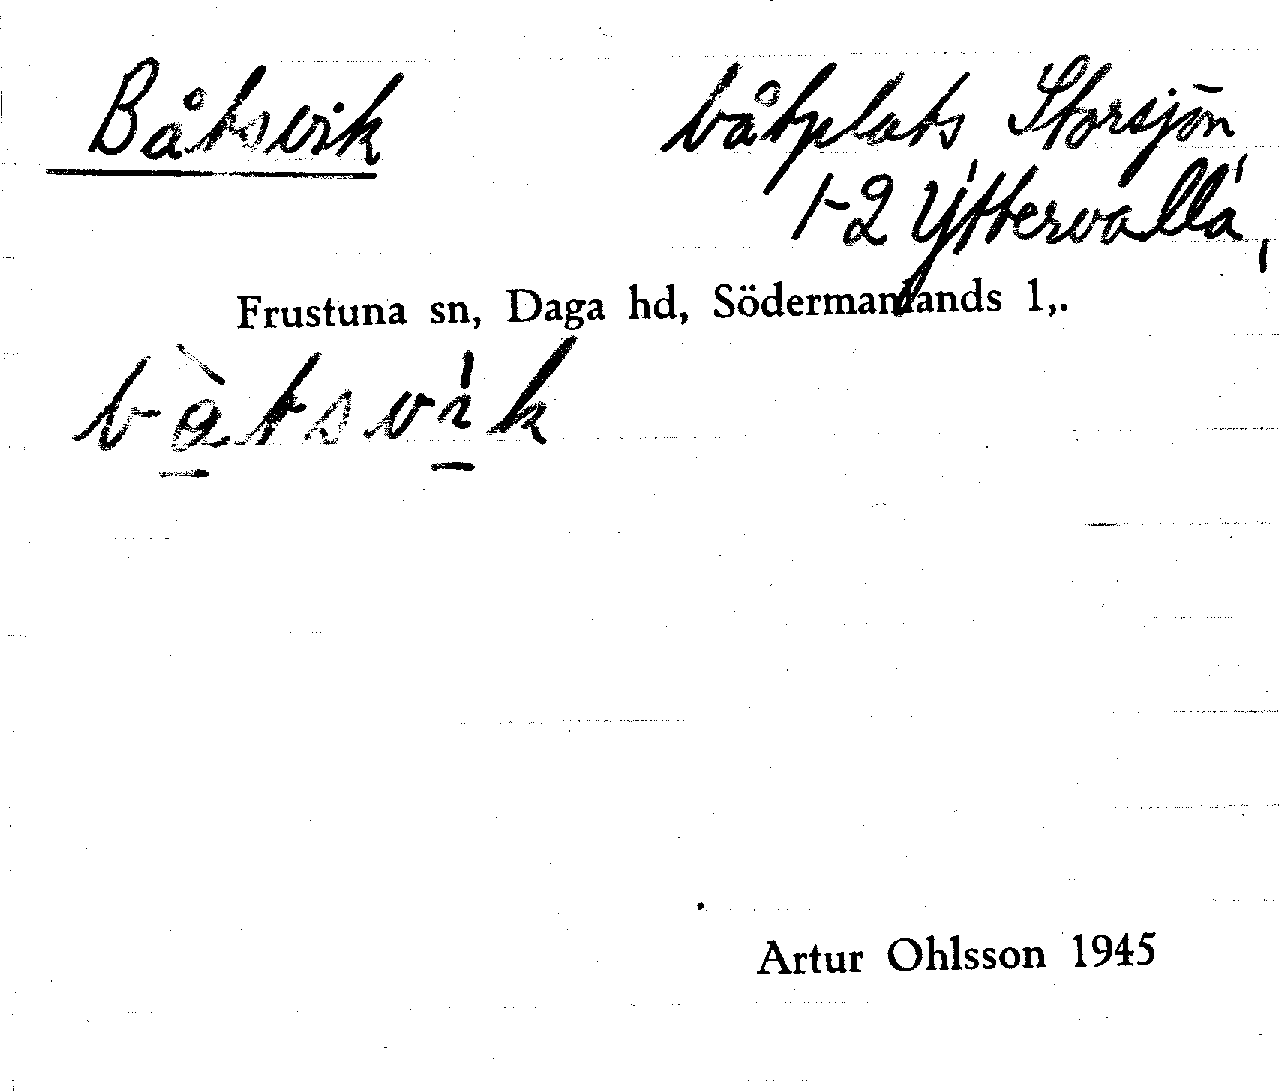 Båtsvik båtplats Storsjön
1-2 Yttervalla,
Frustuna sn, Daga hd, Södermanlands l,.
bàtsvík
Artur Ohlsson 1945